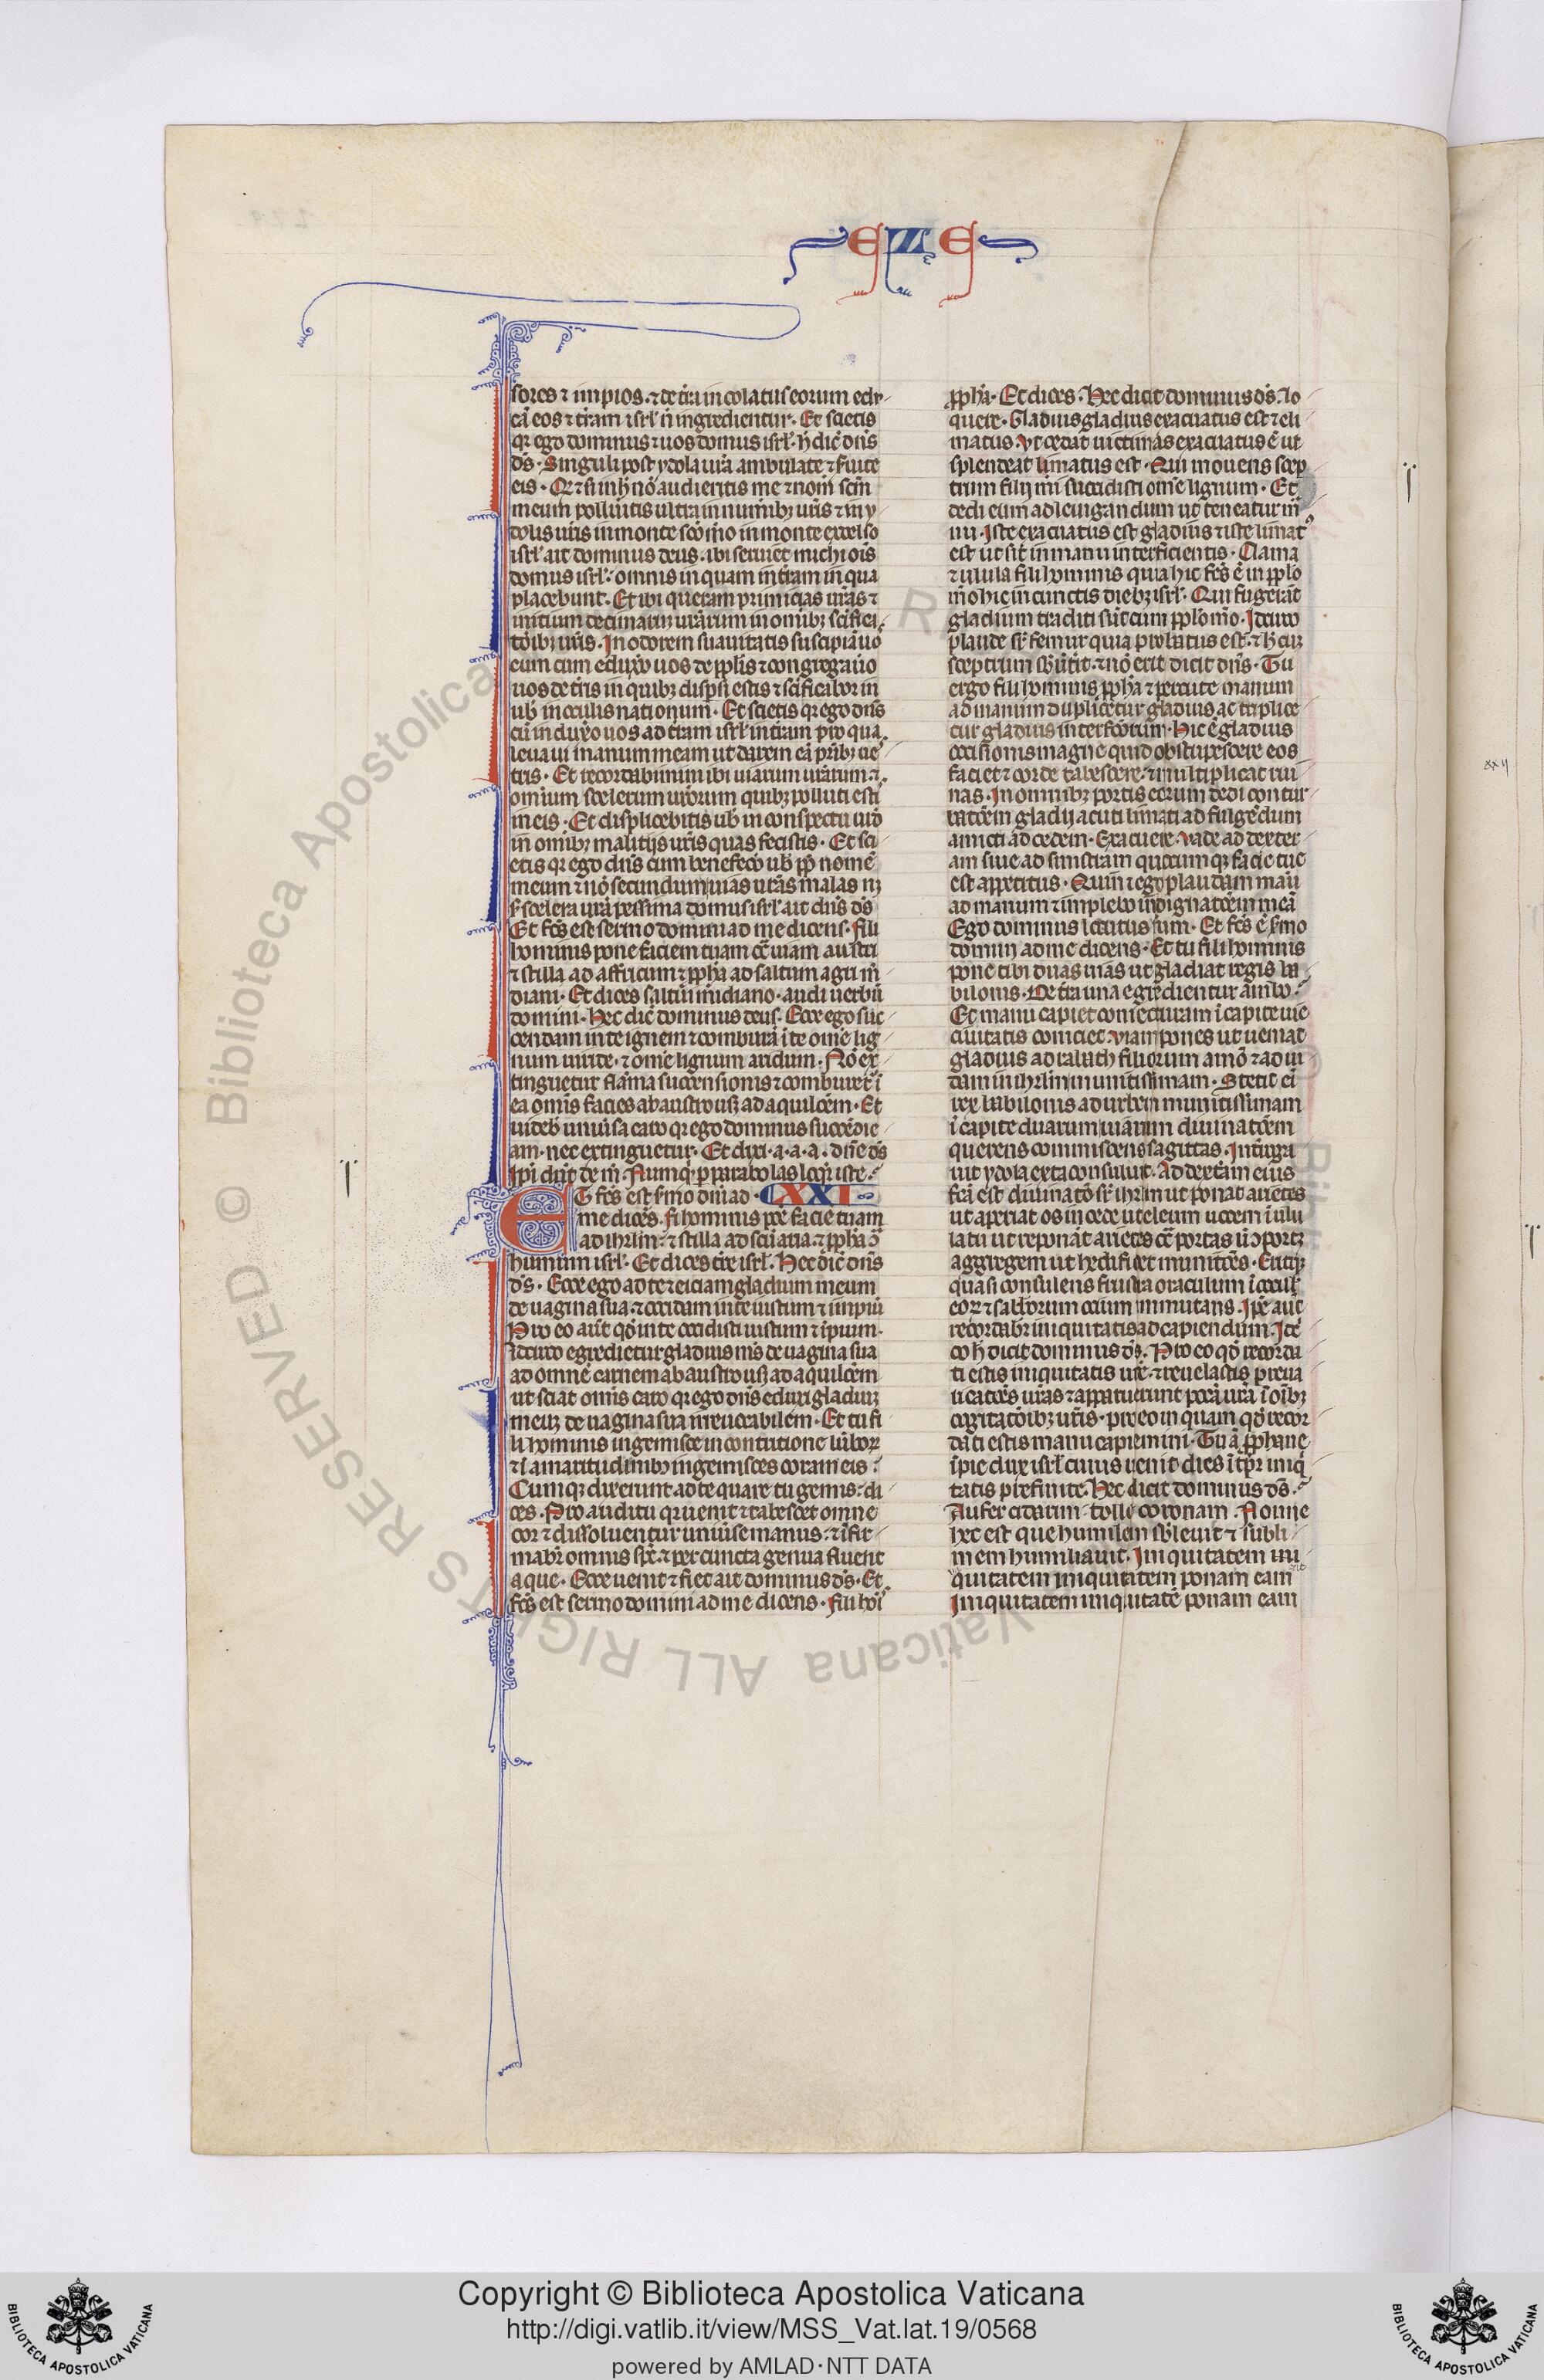 EZE
sores ⁊ impios. ⁊ de t̄ra incolatus eorum edu
cā eos ⁊ t̄ram isrl̄ n̄ ingredientur. Et scietis
qr ego dominus ⁊ uos domus isrl̄. h̄ dic̄ dn̄s
d̄s. Singuli post ydola ur̄a ambulate ⁊ seruite
eis. Qr ⁊ si in h̄ nō audieritis me ⁊ nom̄ sc̄m
meum pollueritis ultra in munibꝫ ur̄is ⁊ in y
dolis ur̄is in monte sc̄o m̄o in monte excelso
isrl̄ ait dominus deus. ibi seruiet michi oīs
domus isrl̄. omnis inquam in t̄ram in qua
placebunt. Et ibi queram primicias ur̄as ⁊
initium decimarum ur̄arum in omībꝫ sc̄ifica
tōibꝫ ur̄is. In odorem suauitatis suscipiā uo
cum cum eduxero uos de ppl̄is ⁊ congregauo
uos de t̄ris in quibꝫ disp̄si estis ⁊ sc̄ificabor in
uob̄ in oculis nationum. Et scietis qr ego dn̄s
cū induxero uos ad t̄ram isrl̄ in t̄ram pro qua
leuaui manum meam ut darem eā pr̄ibꝫ ue
stris. Et recordabimini ibi uiarum ur̄arum ⁊
omnium scelerum ur̄orum quibꝫ polluti esti
in eis. Et displicebitis uob̄ in conspectu ur̄o
in omībꝫ malitijs ur̄is quas fecistis. Et sci
etis qr ego dn̄s cum benefecero uob̄ pp̄ nomē
meum ⁊ nō secundum uias ur̄as malas nꝫ
s̄ scelera ur̄a pessima domus isrl̄ ait dn̄s d̄s
Et fc̄s est sermo domini ad me dicens. fili
hominis pone faciem tuam cō uiam austri
⁊ stilla ad affricum ⁊ ppha ad saltum agri m̄
diani. Et dices saltui m̄idiano. audi uerbū
domini. Hec dic̄ dominus deus. Ecce ego suc
cendam in te ignem ⁊ comburā ī te om̄e lig
num uiride. ⁊ om̄e lignum aridum. Nō ex
tinguetur flāma succensionis ⁊ comburet̄ ī
ea omīs facies ab austro usqꝫ ad aquilōem. Et
uideb̄ uniu̇sa caro qr ego dominus succēdi e
am. nec extinguetur. Et dixi. a. a. a. dn̄e d̄s
ip̄i dn̄t de m̄. Numqꝫ p̱ parabolas loqr̄ iste.
ET fc̄s est s̄mo dn̄i ad XXI
me dicēs. fi hominis pōe facie tuam
ad ihrlm̄. ⁊ stilla ad scūaria. ⁊ ppha ō
humum isrl̄. Et dices t̄re isrl̄. Hec dic̄ dn̄s
d̄s. Ecce ego ad te ⁊ eiciam gladium meum
de uagina sua. ⁊ occidam in te iustum ⁊ impiū
Pro eo aūt qd̄ in te occidisti iustum ⁊ īpium.
idcirco egredietur gladius m̄s de uagina sua
ad omnē carnem ab austro usqꝫ ad aquilōem
ut sciat omīs caro qr ego dn̄s eduxi gladiuꝫ
meuꝫ de uagina sua irreuocabilem. Et tu fi
li hominis ingemisce in contritione lūborꝝ
⁊ ī amaritudinibꝫ ingemisces coram eis.
Cumqꝫ dixerint ad te quare tu gemis. di
ces. Pro auditu qr uenit ⁊ tabescet omne
cor ⁊ dissoluentur uniu̇se manus. ⁊ īfir
mabit̄ omnis sp̄s. ⁊ per cuncta genua fluent
aque. Ecce uenit ⁊ fiet ait dominus d̄s. Et
fc̄s est sermo domini ad me dicens. fili hoī
ppha. Et dices. Hec dicit dominus d̄s. lo
quere. Gladius gladius exacuatus est ⁊ eli
matus. Vt cedat uictimas exacuatus ē ut
splendeat limatus est. Qui moues scep
trum filij m̄i succidisti om̄e lignum. Et
dedi eum ad leuigandum ut teneatur m̄
nu. Iste exacuatus est gladius ⁊ iste limatꝰ
est ut sit in manu interficientis. Clama
⁊ ulula fili hominis quia hic fc̄s ē in ppl̄o
m̄o hic in cunctis diebꝫ isrl̄. Qui fugerāt
gladium traditi sūt cum ppl̄o m̄o. Idcirco
plaude sr̄ femur quia probatus est. ⁊ h̄ cuꝫ
sceptrum sbūtīt. ⁊ nō erit dicit dn̄s. Tu
ergo fili hominis ppha ⁊ percute manum
ad manum duplicetur gladius ac triplice
tur gladius interfcōrum. Hic ē gladius
occisionis magne qui obstupescere eos
faciet ⁊ corde tabescere. ⁊ multiplicat rui
nas. In omnibꝫ portis eorum dedi contur
batōem gladij acuti limati ad fulgēdum
amicti ad cedem. Exacuere. vade ad dexter
am siue ad sinistram quocumqꝫ facie tue
est appetitus. Quin ⁊ ego plaudam manū
ad manum ⁊ implebo indignatōem meā
Ego dominus locutus sum. Et fc̄s ē s̄mo
domini ad me dicens. Et tu fili hominis
pone tibi duas uias ut gladiat regis ba
bilonis. De t̄ra una egredientur ambo.
Et manu capiet coniecturam ī capite uie
ciuitatis coniciet. viam pones ut ueniat
gladius ad rabath filiorum amō ⁊ ad iu
dam in ihrlm̄ munitissimam. Stetit ei
rex babilonis ad urbem munitissimam
ī capite duarum uiarum diuinatōem
querens commiscens sagittas. Int̄roga
uit ydola exta consuluit. Ad dext̄am eius
fcā est diuinatō sr̄ ihrlm̄ ut ponat arietes
ut aperiat os in cede ut eleuem uocem ī ulu
latu ut reponāt arietes cō portas ū ↄportꝫ
aggregem ut hedificet munitōes. Eritqꝫ
quasi consulens frustra oraculum ī ocul̄
eorꝝ ⁊ sabb̄orum ocium inmutans. Ip̄e aūt
recordabit̄ iniquitatis ad capiendum. Icc̄
co h̄ dicit dominus d̄s. Pro eo qd̄ recorda
ti estis iniquitatis ur̄e. ⁊ reuelastis preua
ricatōes ur̄as ⁊ apparuerunt pccā ur̄a ī oībꝫ
cogitatōibꝫ ur̄is. pro eo inquam qd̄ recor
dati estis manu capiemini. Tu ā pphane
īpie dux isrl̄ cuius uenit dies ī tp̄r iniq̄
tatis prefinite. Hec dicit dominus d̄s.
Aufer cidarim tolle coronam. Nonne
hec est que humilem sb̄leuit ⁊ subli
mem humiliauit. Iniquitatem ini
quitatem iniquitatem ponam eam
Iniquitatem iniquitatē ponam eam
xxij
Copyright © Biblioteca Apostolica Vaticana
http://digi.vatlib.it/view/MSS_Vat.lat.19/0568
powered by AMLAD·NTT DATA
BIBLIOTECA APOSTOLICA VATICANA
BIBLIOTECA APOSTOLICA VATICANA